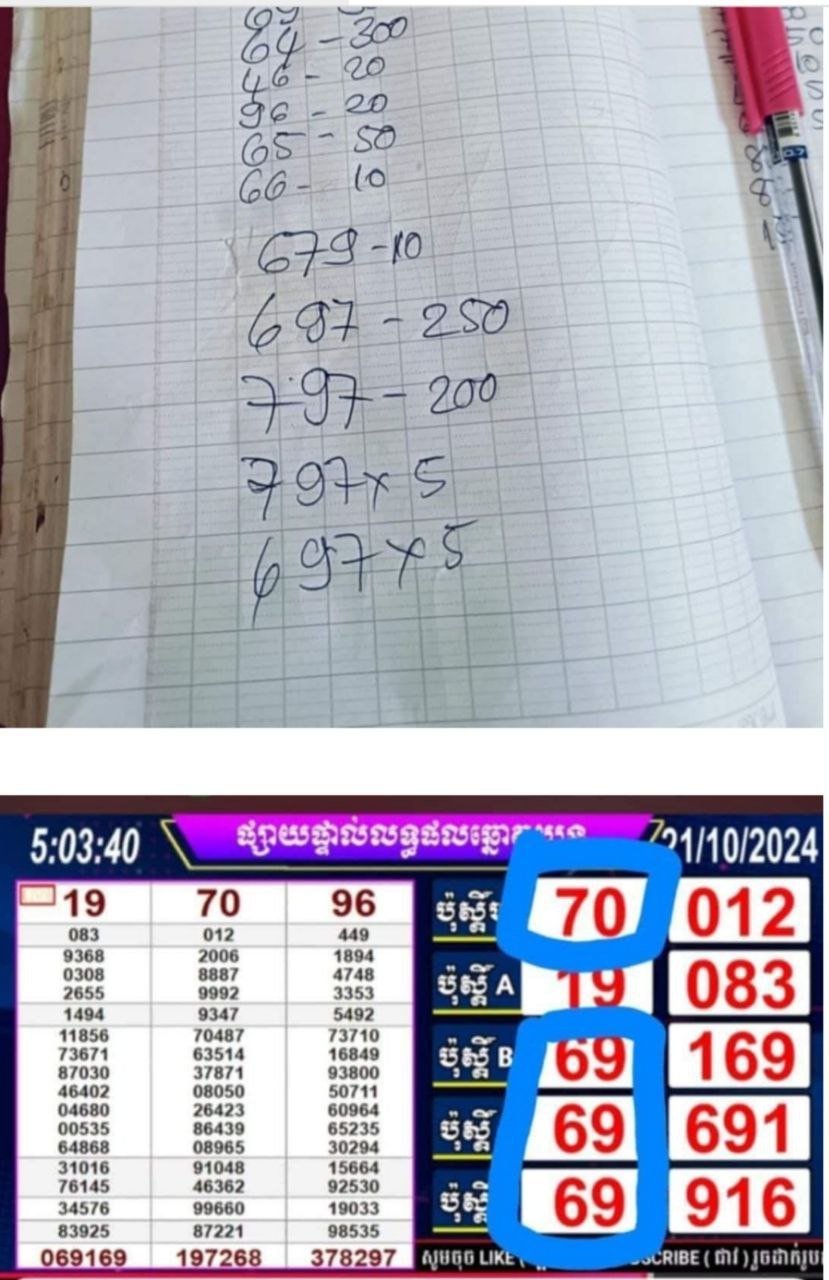 64 - 300
46 - 20
96 - 20
65 - 50
66 - 10
679 - 10
697 - 250
797 - 200
797 x 5
697 x 5
5:03:40 ផ្សាយផ្ទាល់លទ្ធផលឆ្នោត 21/10/2024
19 70 96
083 012 449
9368 2006 1894
0308 8887 4748
2655 9992 3353
1494 9347 5492
11856 70487 73710
73671 63514 16849
87030 37871 93800
46402 08050 50711
04680 26423 60964
00535 86439 65235
64868 08965 30294
31016 91048 15664
76145 46362 92530
34576 99660 19033
83925 87221 98535
069169 197268 378297
ប៉ុស្តិ៍ 70 012
ប៉ុស្តិ៍ A 19 083
ប៉ុស្តិ៍ B 69 169
ប៉ុស្តិ៍ 69 691
ប៉ុស្តិ៍ 69 916
សូមចុច LIKE ( SCRIBE ( ជាវ ) រួចដាក់រូប